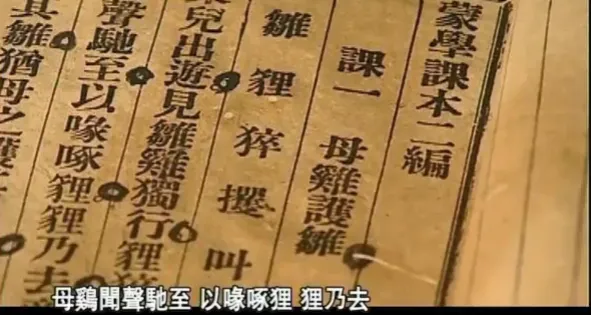 蒙學課本二編
課一 母雞護雛
雛 狸 猝 攫 叫
兒出遊見雛雞獨行狸
聲馳至以喙啄貍貍乃去
其雛猶母之護
母鷄聞聲馳至 以喙啄狸 狸乃去